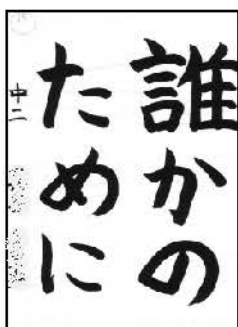 誰かの
ために
中二